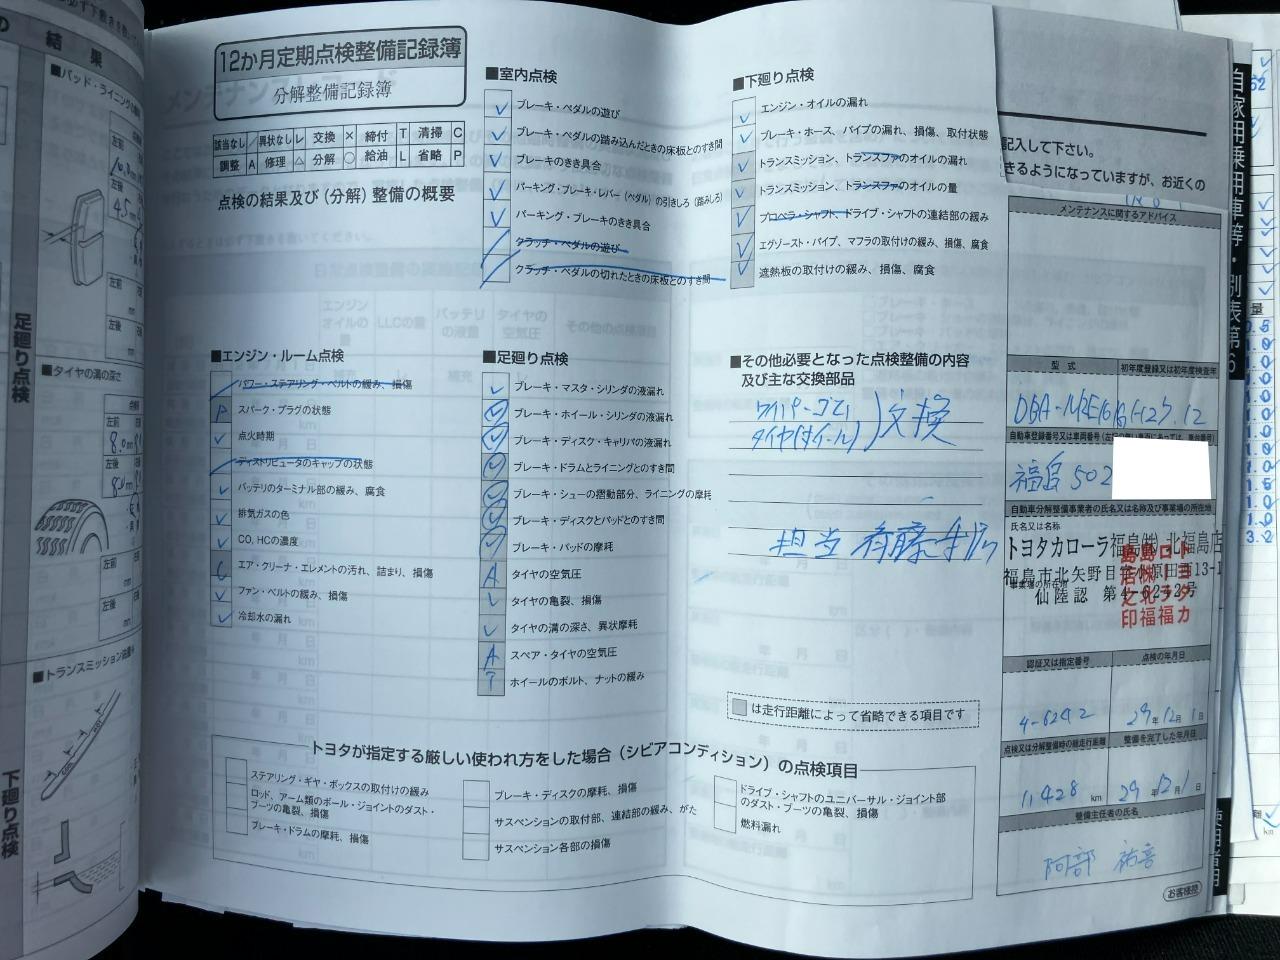 の結果
■パッド・ライニングの
足廻り点検
■タイヤの溝の深さ
左前
8.0mm
左後
■トランスミッション油量
下廻り点検
12か月定期点検整備記録簿
分解整備記録簿
該当なし / 異状なし レ 交換 × 締付 T 清掃 C
調整 A 修理 △ 分解 ○ 給油 L 省略 P
点検の結果及び(分解)整備の概要
■室内点検
ブレーキ・ペダルの遊び
ブレーキ・ペダルの踏み込んだときの床板とのすき間
ブレーキのきき具合
パーキング・ブレーキ・レバー(ペダル)の引きしろ(踏みしろ)
パーキング・ブレーキのきき具合
クラッチ・ペダルの遊び
クラッチ・ペダルの切れたときの床板とのすき間
■下廻り点検
エンジン・オイルの漏れ
ブレーキ・ホース、パイプの漏れ、損傷、取付状態
トランスミッション、トランスファのオイルの漏れ
トランスミッション、トランスファのオイルの量
プロペラ・シャフト、ドライブ・シャフトの連結部の緩み
エグゾースト・パイプ、マフラの取付けの緩み、損傷、腐食
遮熱板の取付けの緩み、損傷、腐食
■エンジン・ルーム点検
パワー・ステアリング・ベルトの緩み、損傷
P スパーク・プラグの状態
点火時期
ディストリビュータのキャップの状態
バッテリのターミナル部の緩み、腐食
排気ガスの色
CO、HCの濃度
エア・クリーナ・エレメントの汚れ、詰まり、損傷
ファン・ベルトの緩み、損傷
冷却水の漏れ
■足廻り点検
ブレーキ・マスタ・シリンダの液漏れ
ブレーキ・ホイール・シリンダの液漏れ
ブレーキ・ディスク・キャリパの液漏れ
ブレーキ・ドラムとライニングとのすき間
ブレーキ・シューの摺動部分、ライニングの摩耗
ブレーキ・ディスクとパッドとのすき間
ブレーキ・パッドの摩耗
A タイヤの空気圧
タイヤの亀裂、損傷
タイヤの溝の深さ、異状摩耗
A スペア・タイヤの空気圧
T ホイールのボルト、ナットの緩み
■その他必要となった点検整備の内容
及び主な交換部品
ワイパーゴム
タイヤ(ホイール) 交換
担当 斉藤
は走行距離によって省略できる項目です
トヨタが指定する厳しい使われ方をした場合(シビアコンディション)の点検項目
ステアリング・ギヤ・ボックスの取付けの緩み
ロッド、アーム類のボール・ジョイントのダスト・
ブーツの亀裂、損傷
ブレーキ・ドラムの摩耗、損傷
ブレーキ・ディスクの摩耗、損傷
サスペンションの取付部、連結部の緩み、がた
サスペンション各部の損傷
ドライブ・シャフトのユニバーサル・ジョイント部
のダスト・ブーツの亀裂、損傷
燃料漏れ
記入して下さい。
きるようになっていますが、お近くの
メンテナンスに関するアドバイス
型式 初年度登録又は初年度検査年
H27.12
福島 502
自動車分解整備事業者の氏名又は名称及び事業場の所在地
氏名又は名称
トヨタカローラ福島(株) 北福島店
仙陸認 第4-6242号
認証又は指定番号 点検の年月日
4-6242 29年12月1日
点検又は分解整備時の総走行距離 整備を完了した年月日
11,428 km 29年12月1日
整備主任者の氏名
阿部
お客様控
自家用乗用車等・別表第6